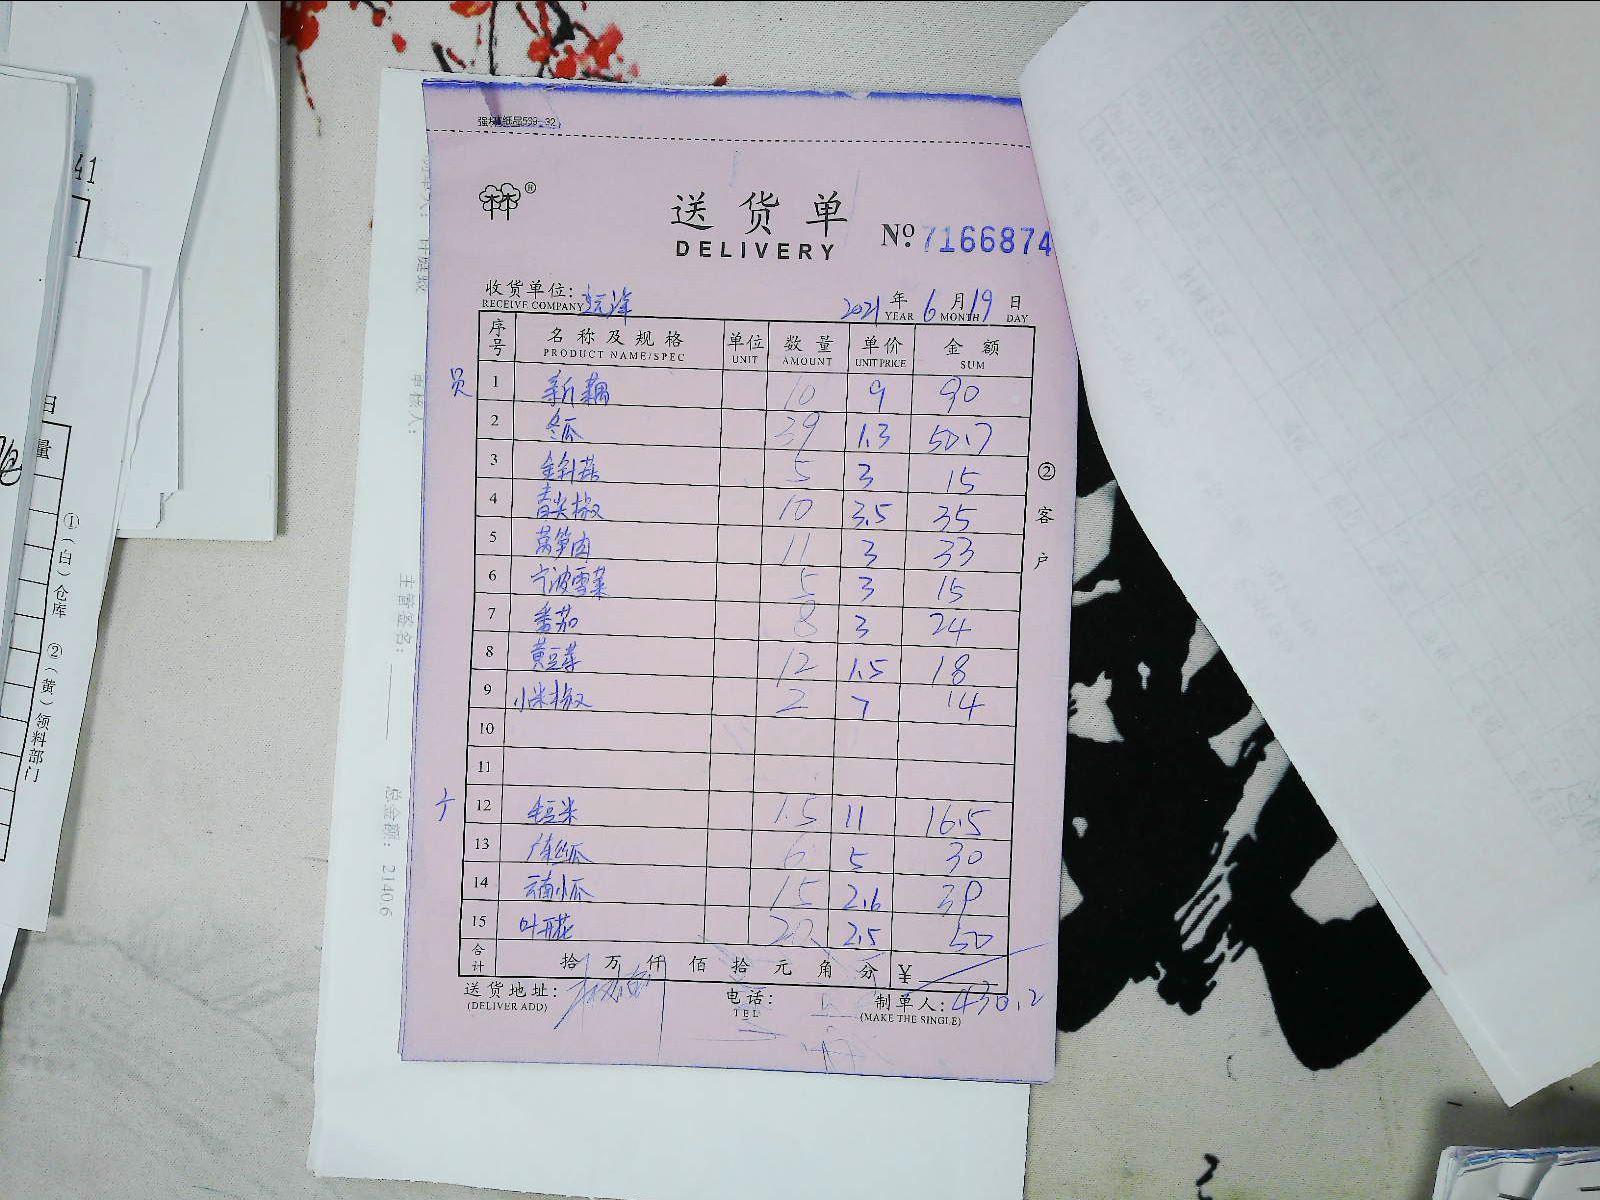 送货单
DELIVERY
Nº 7166874
收货单位:
RECEIVE COMPANY
2021 年 6 月 19 日
YEAR MONTH DAY
序号 名称及规格 单位 数量 单价 金额
PRODUCT NAME/SPEC UNIT AMOUNT UNIT PRICE SUM
员 1 新藕 10 9 90
2 冬瓜 39 1.3 50.7
3 金针菇 5 3 15
4 青尖椒 10 3.5 35
5 莴笋肉 11 3 33
6 宁波雪菜 5 3 15
7 番茄 8 3 24
8 黄豆芽 12 1.5 18
9 小米椒 2 7 14
10
11
12 毛豆米 1.5 11 16.5
13 丝瓜 6 5 30
14 云南小瓜 15 2.6 39
15 20 2.5 50
合计 拾 万 仟 佰 拾 元 角 分 ¥
430.2
送货地址: 电话: 制单人:
(DELIVER ADD) TEL (MAKE THE SINGLE)
②客户
主管签名:
总金额: 2140.6
审核人:
41
日
量
①(白)仓库 ②(黄)领料部门